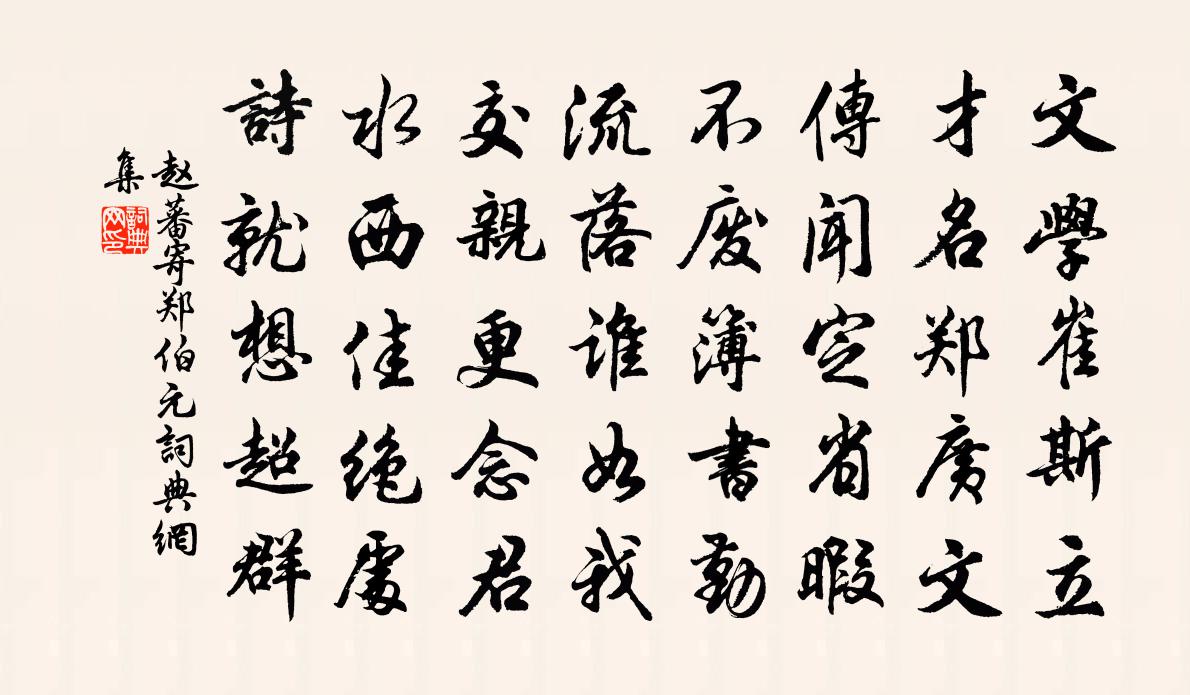 文學崔斯立
才名郑廣文
傳聞定省暇
不废簿書勤
流落谁如我
交親更念君
水西佳绝處
詩就想超群
赵蕃寄郑伯元詞典網
集
詞典網印